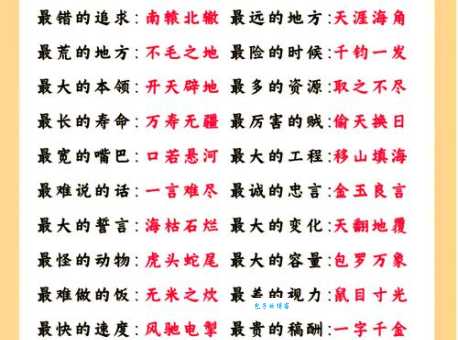 最错的追求：南辕北辙 最远的地方：天涯海角
最荒的地方：不毛之地 最险的时候：千钧一发
最大的本领：开天辟地 最多的资源：取之不尽
最长的寿命：万寿无疆 最厉害的贼：偷天换日
最宽的嘴巴：口若悬河 最大的工程：移山填海
最难说的话：一言难尽 最诚的忠言：金玉良言
最大的誓言：海枯石烂 最大的变化：天翻地覆
最怪的动物：虎头蛇尾 最大的容量：包罗万象
最难做的饭：无米之炊 最差的视力：鼠目寸光
最快的速度：风驰电掣 最贵的稿酬：一字千金